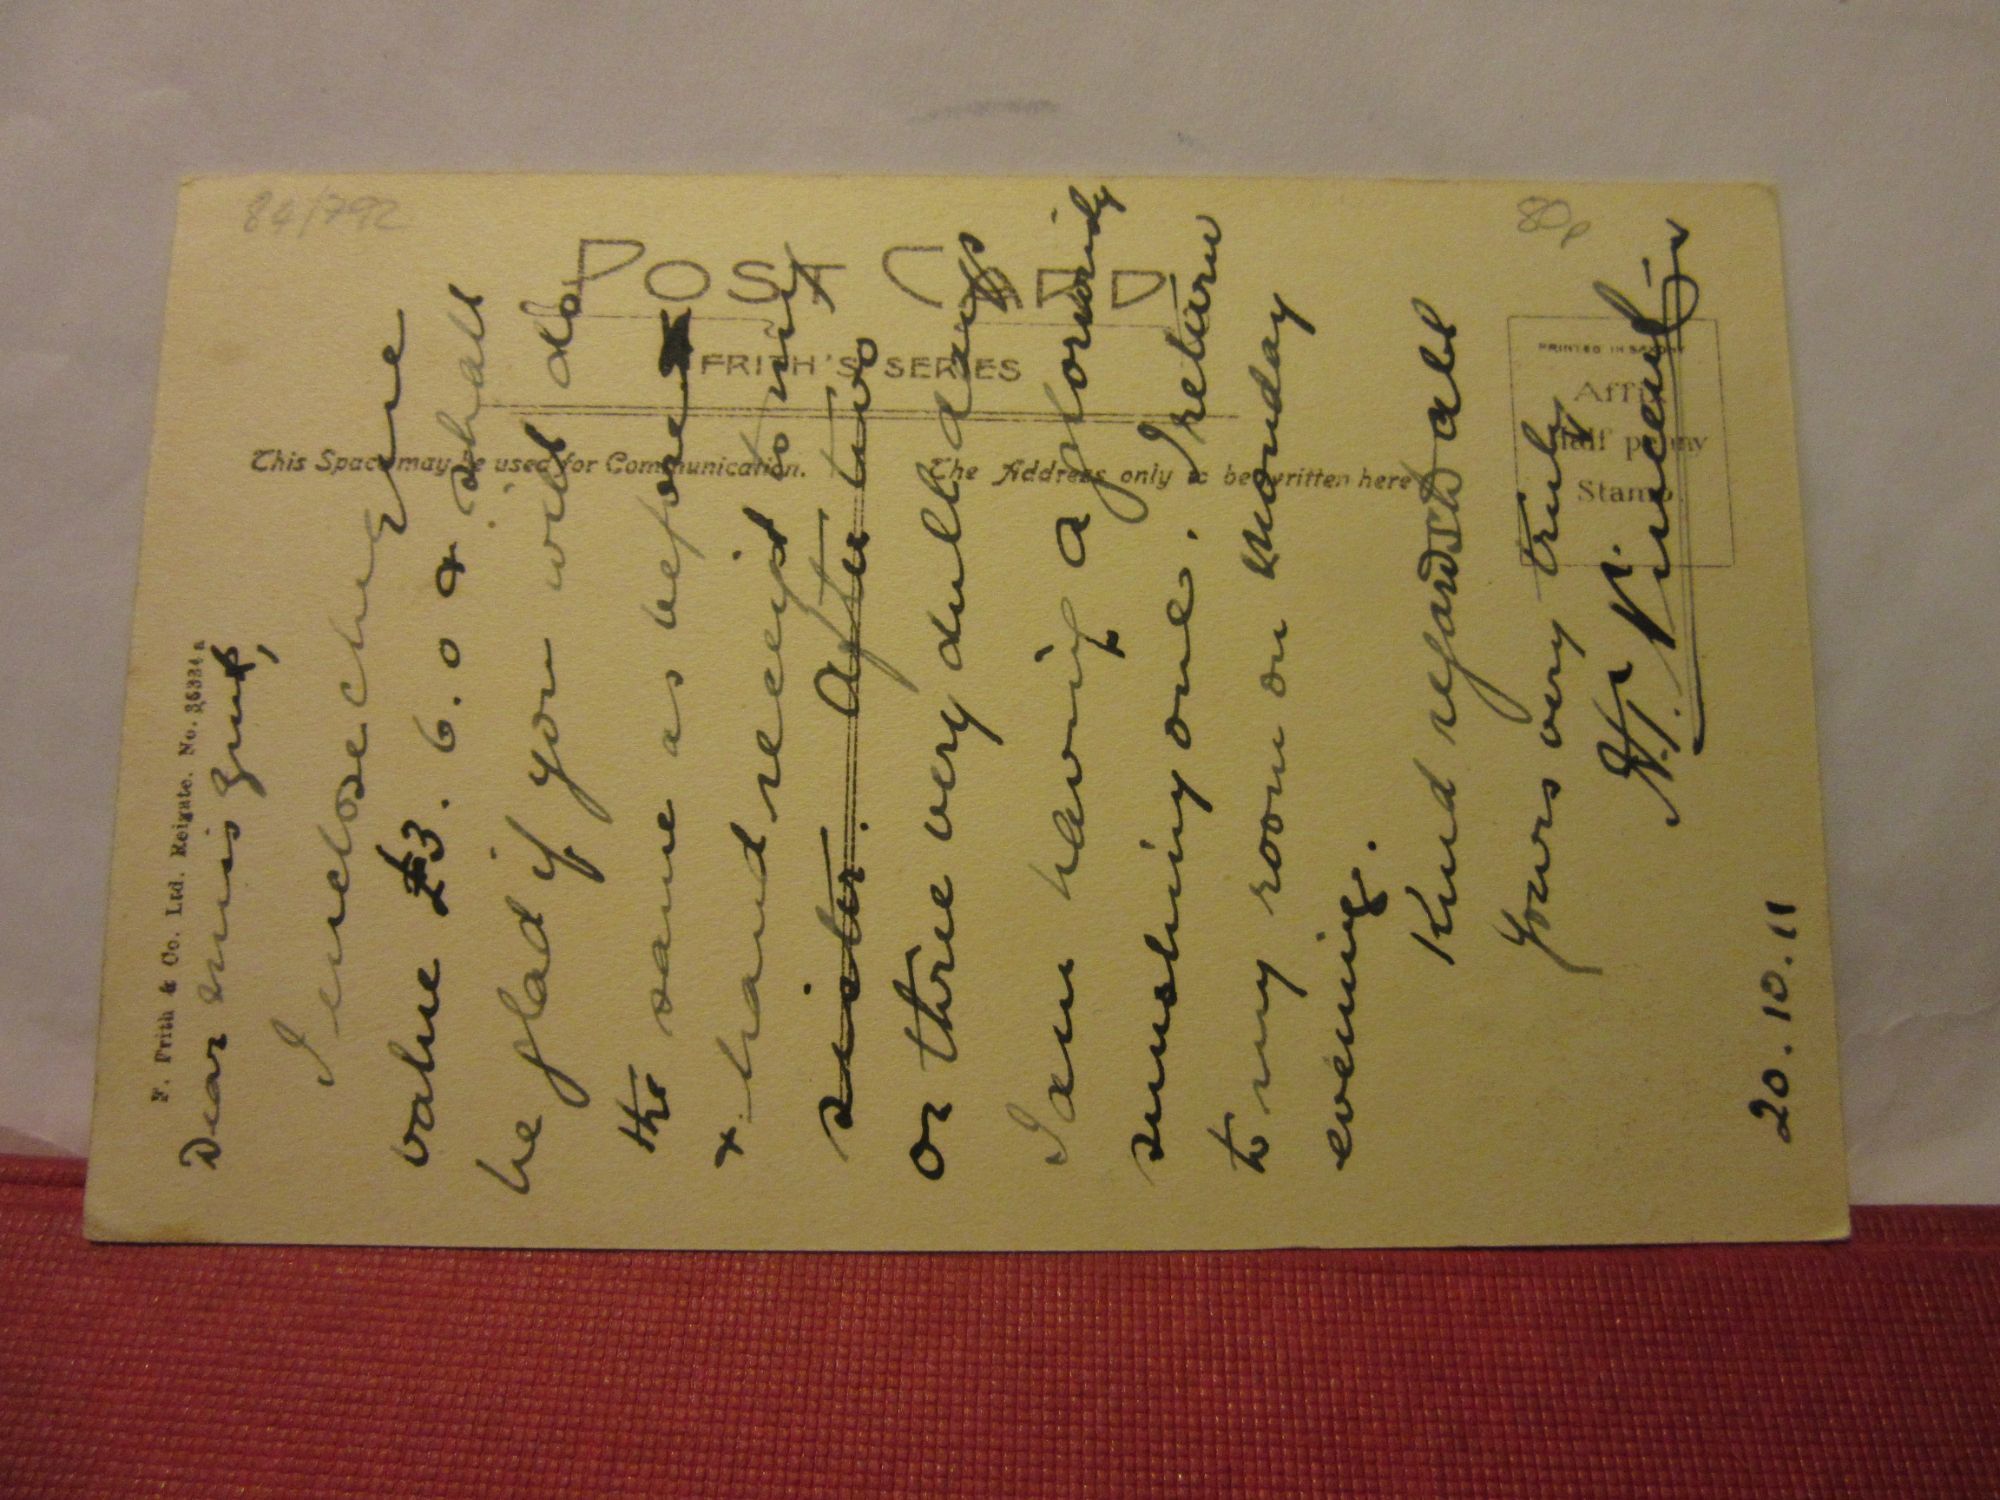 84/792
80p
POST CARD
FRITH'S SERIES
This Space may be used for Communication.
The Address only to be written here
PRINTED IN SAXONY
Affix
Half penny
Stamp.
F. Frith & Co. Ltd. Reigate. No.
Dear Miss
I enclose cheque
value £3.6.0 & shall
be glad if you will do
the same as before
& hand receipt to my
sister. After two
or three very dull days
I am having a gloriously
sunshiny one. I return
to my room on Monday
evening.
Kind regards to all
Yours very truly
20.10.11